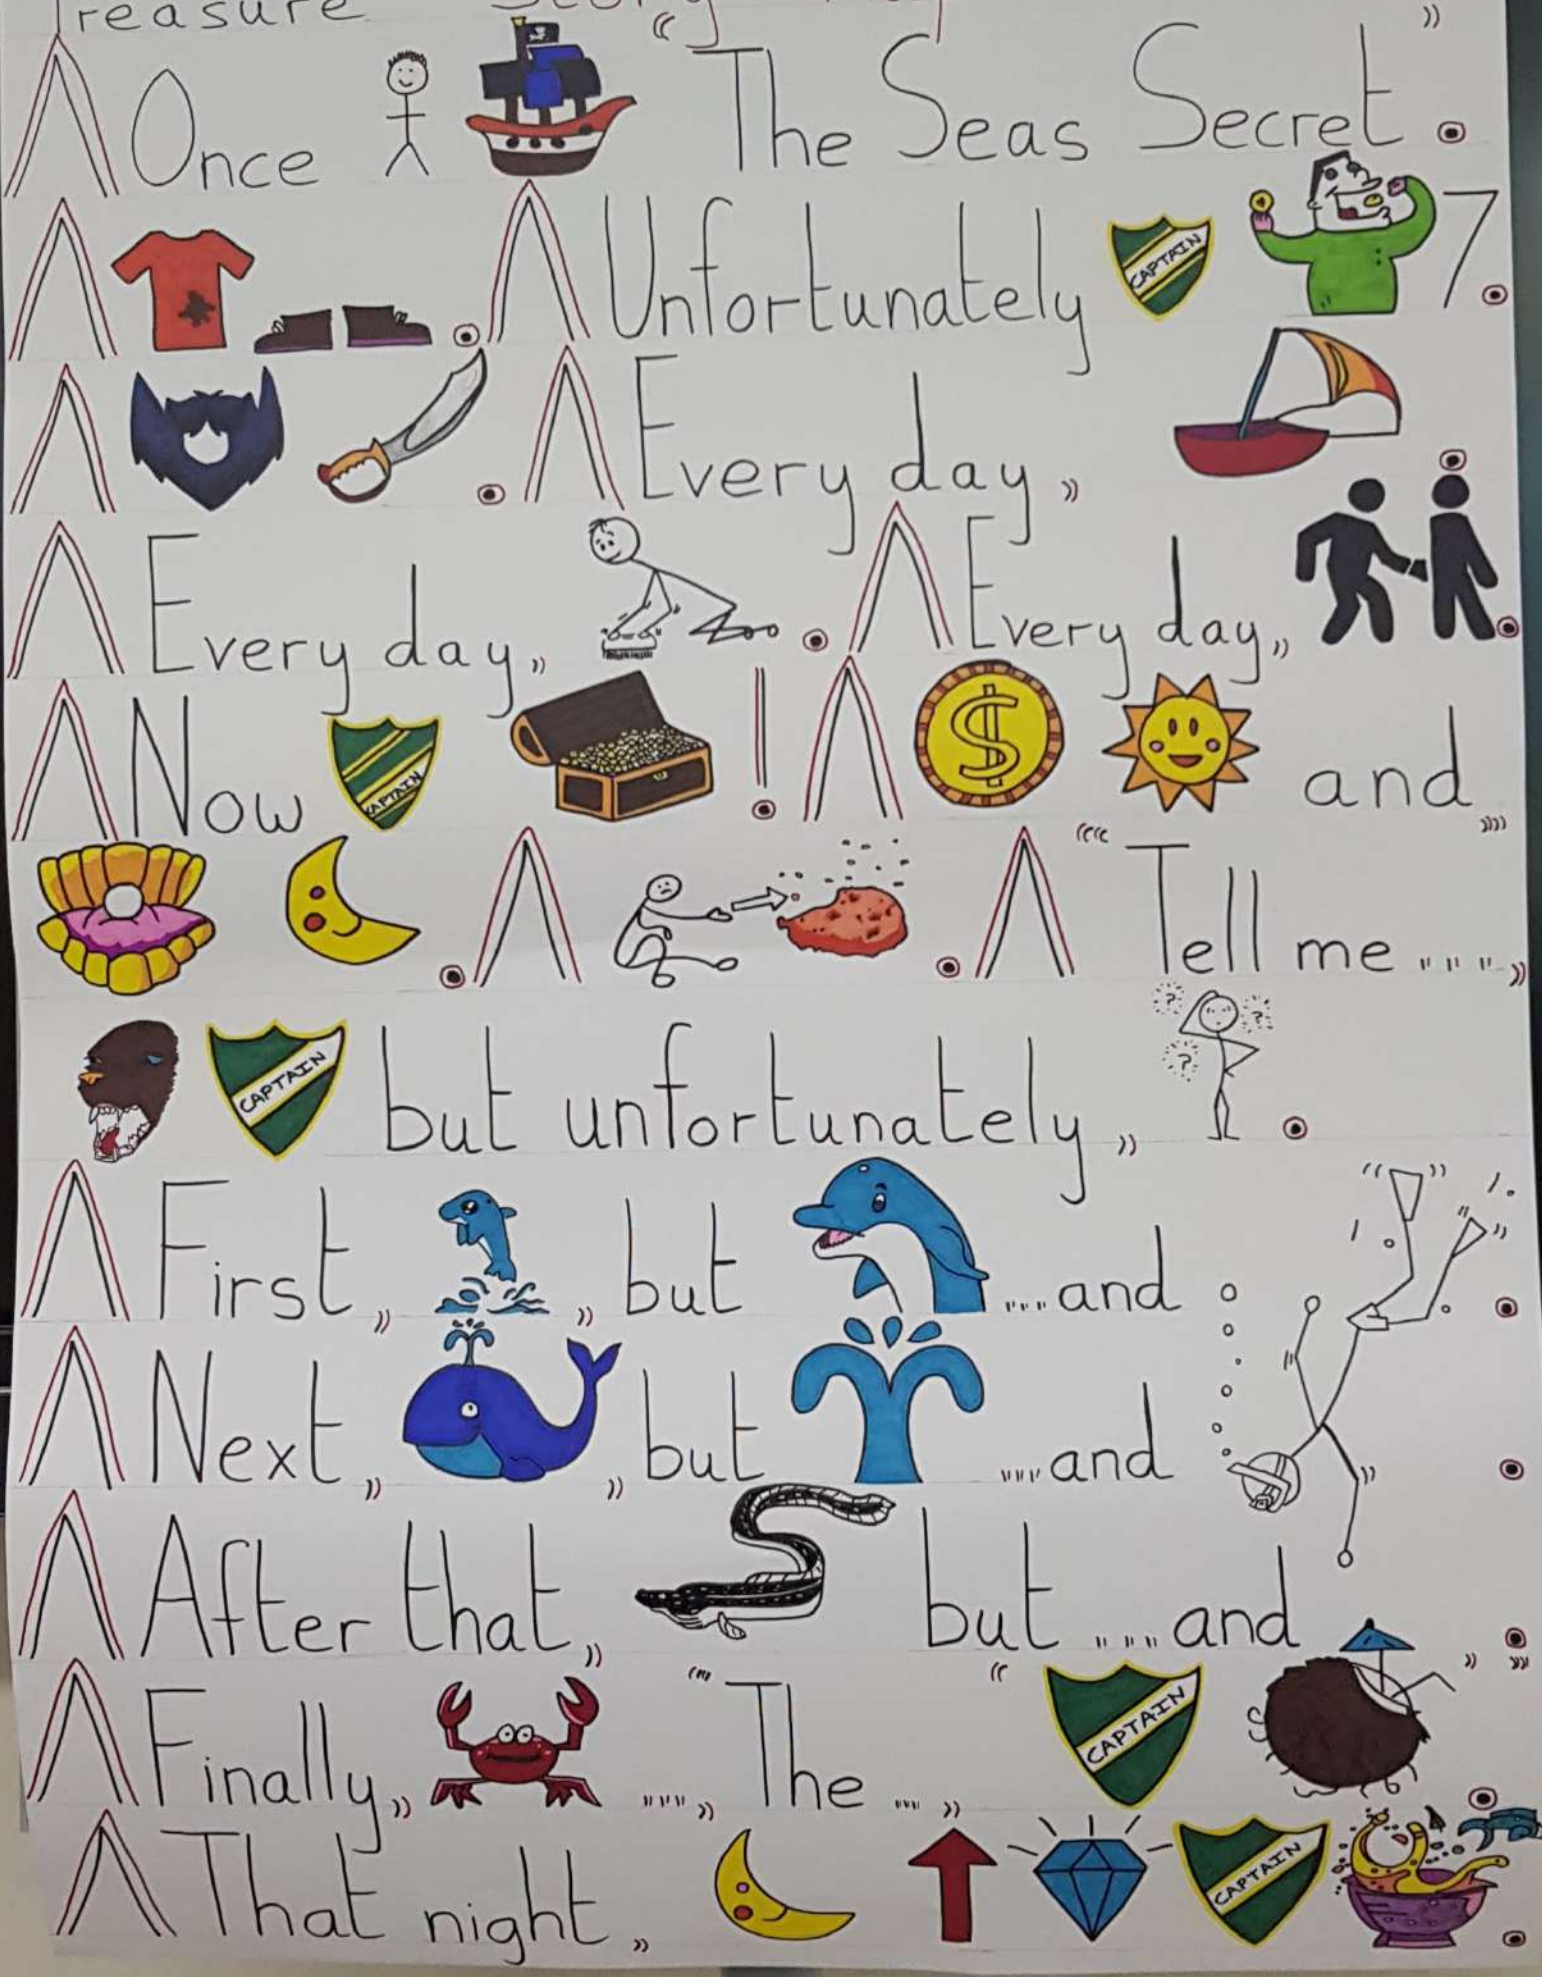 Treasure Story Map
Once " The Seas Secret " .
. Unfortunately CAPTAIN 7.
. Every day, .
Every day, . Every day, .
Now CAPTAIN ! $ and
. . " Tell me ....,
CAPTAIN but unfortunately, ? ? ? .
First, , but ....and .
Next, , but ....and .
After that, but ....and .
Finally, ...., "The ...," " CAPTAIN " .
That night, CAPTAIN .